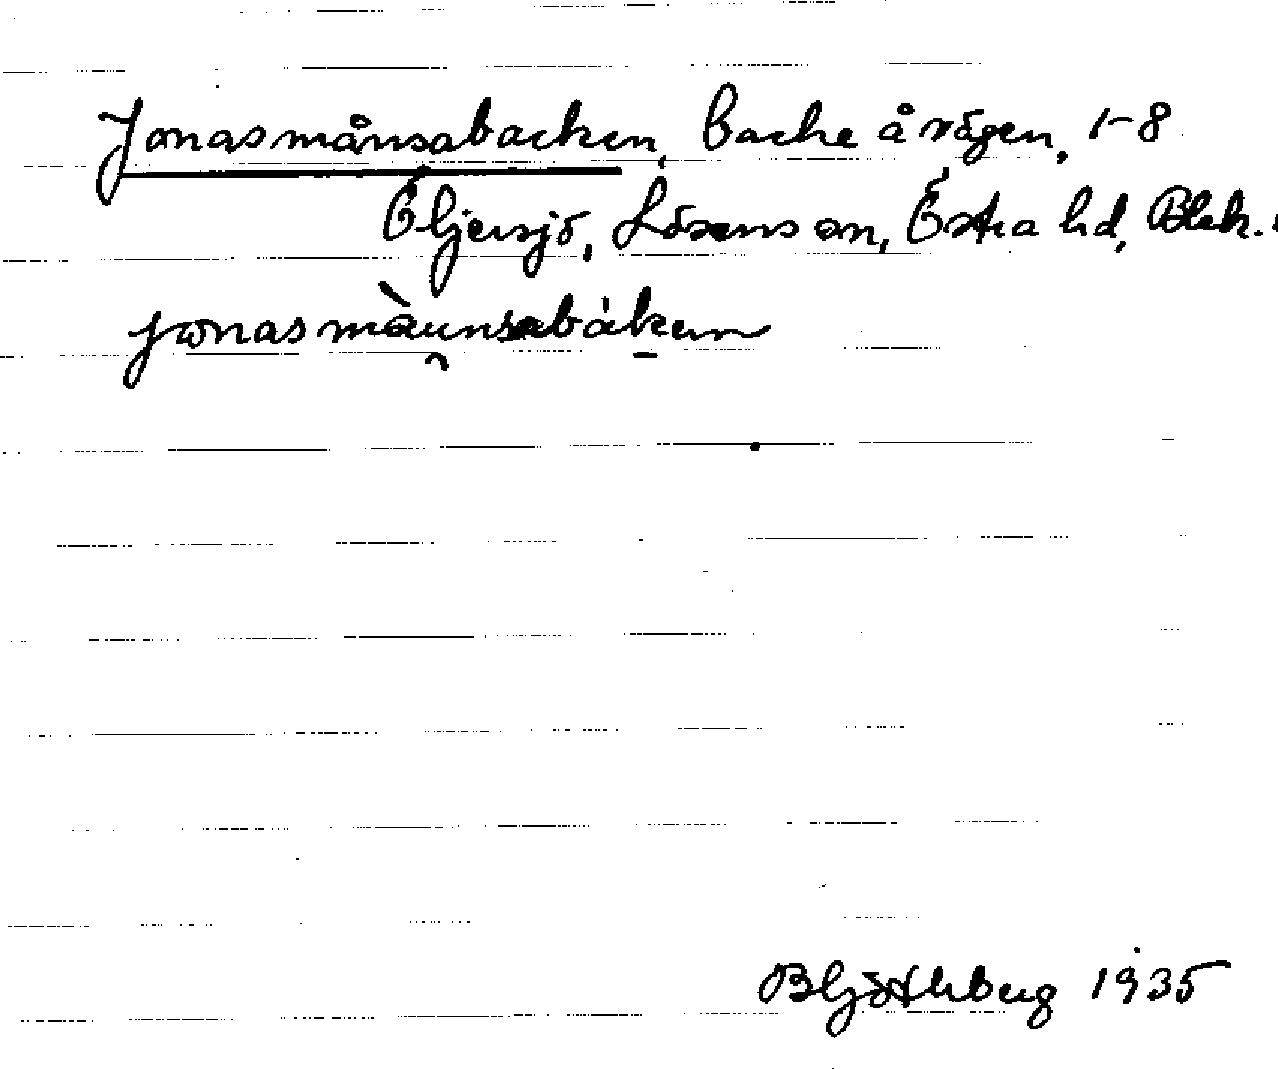 Jonasmånsabacken, backe å vägen, 1-8
Öljersjö, Lösens sn, Östra hd, Blek.
jonasmånsabakən
1935